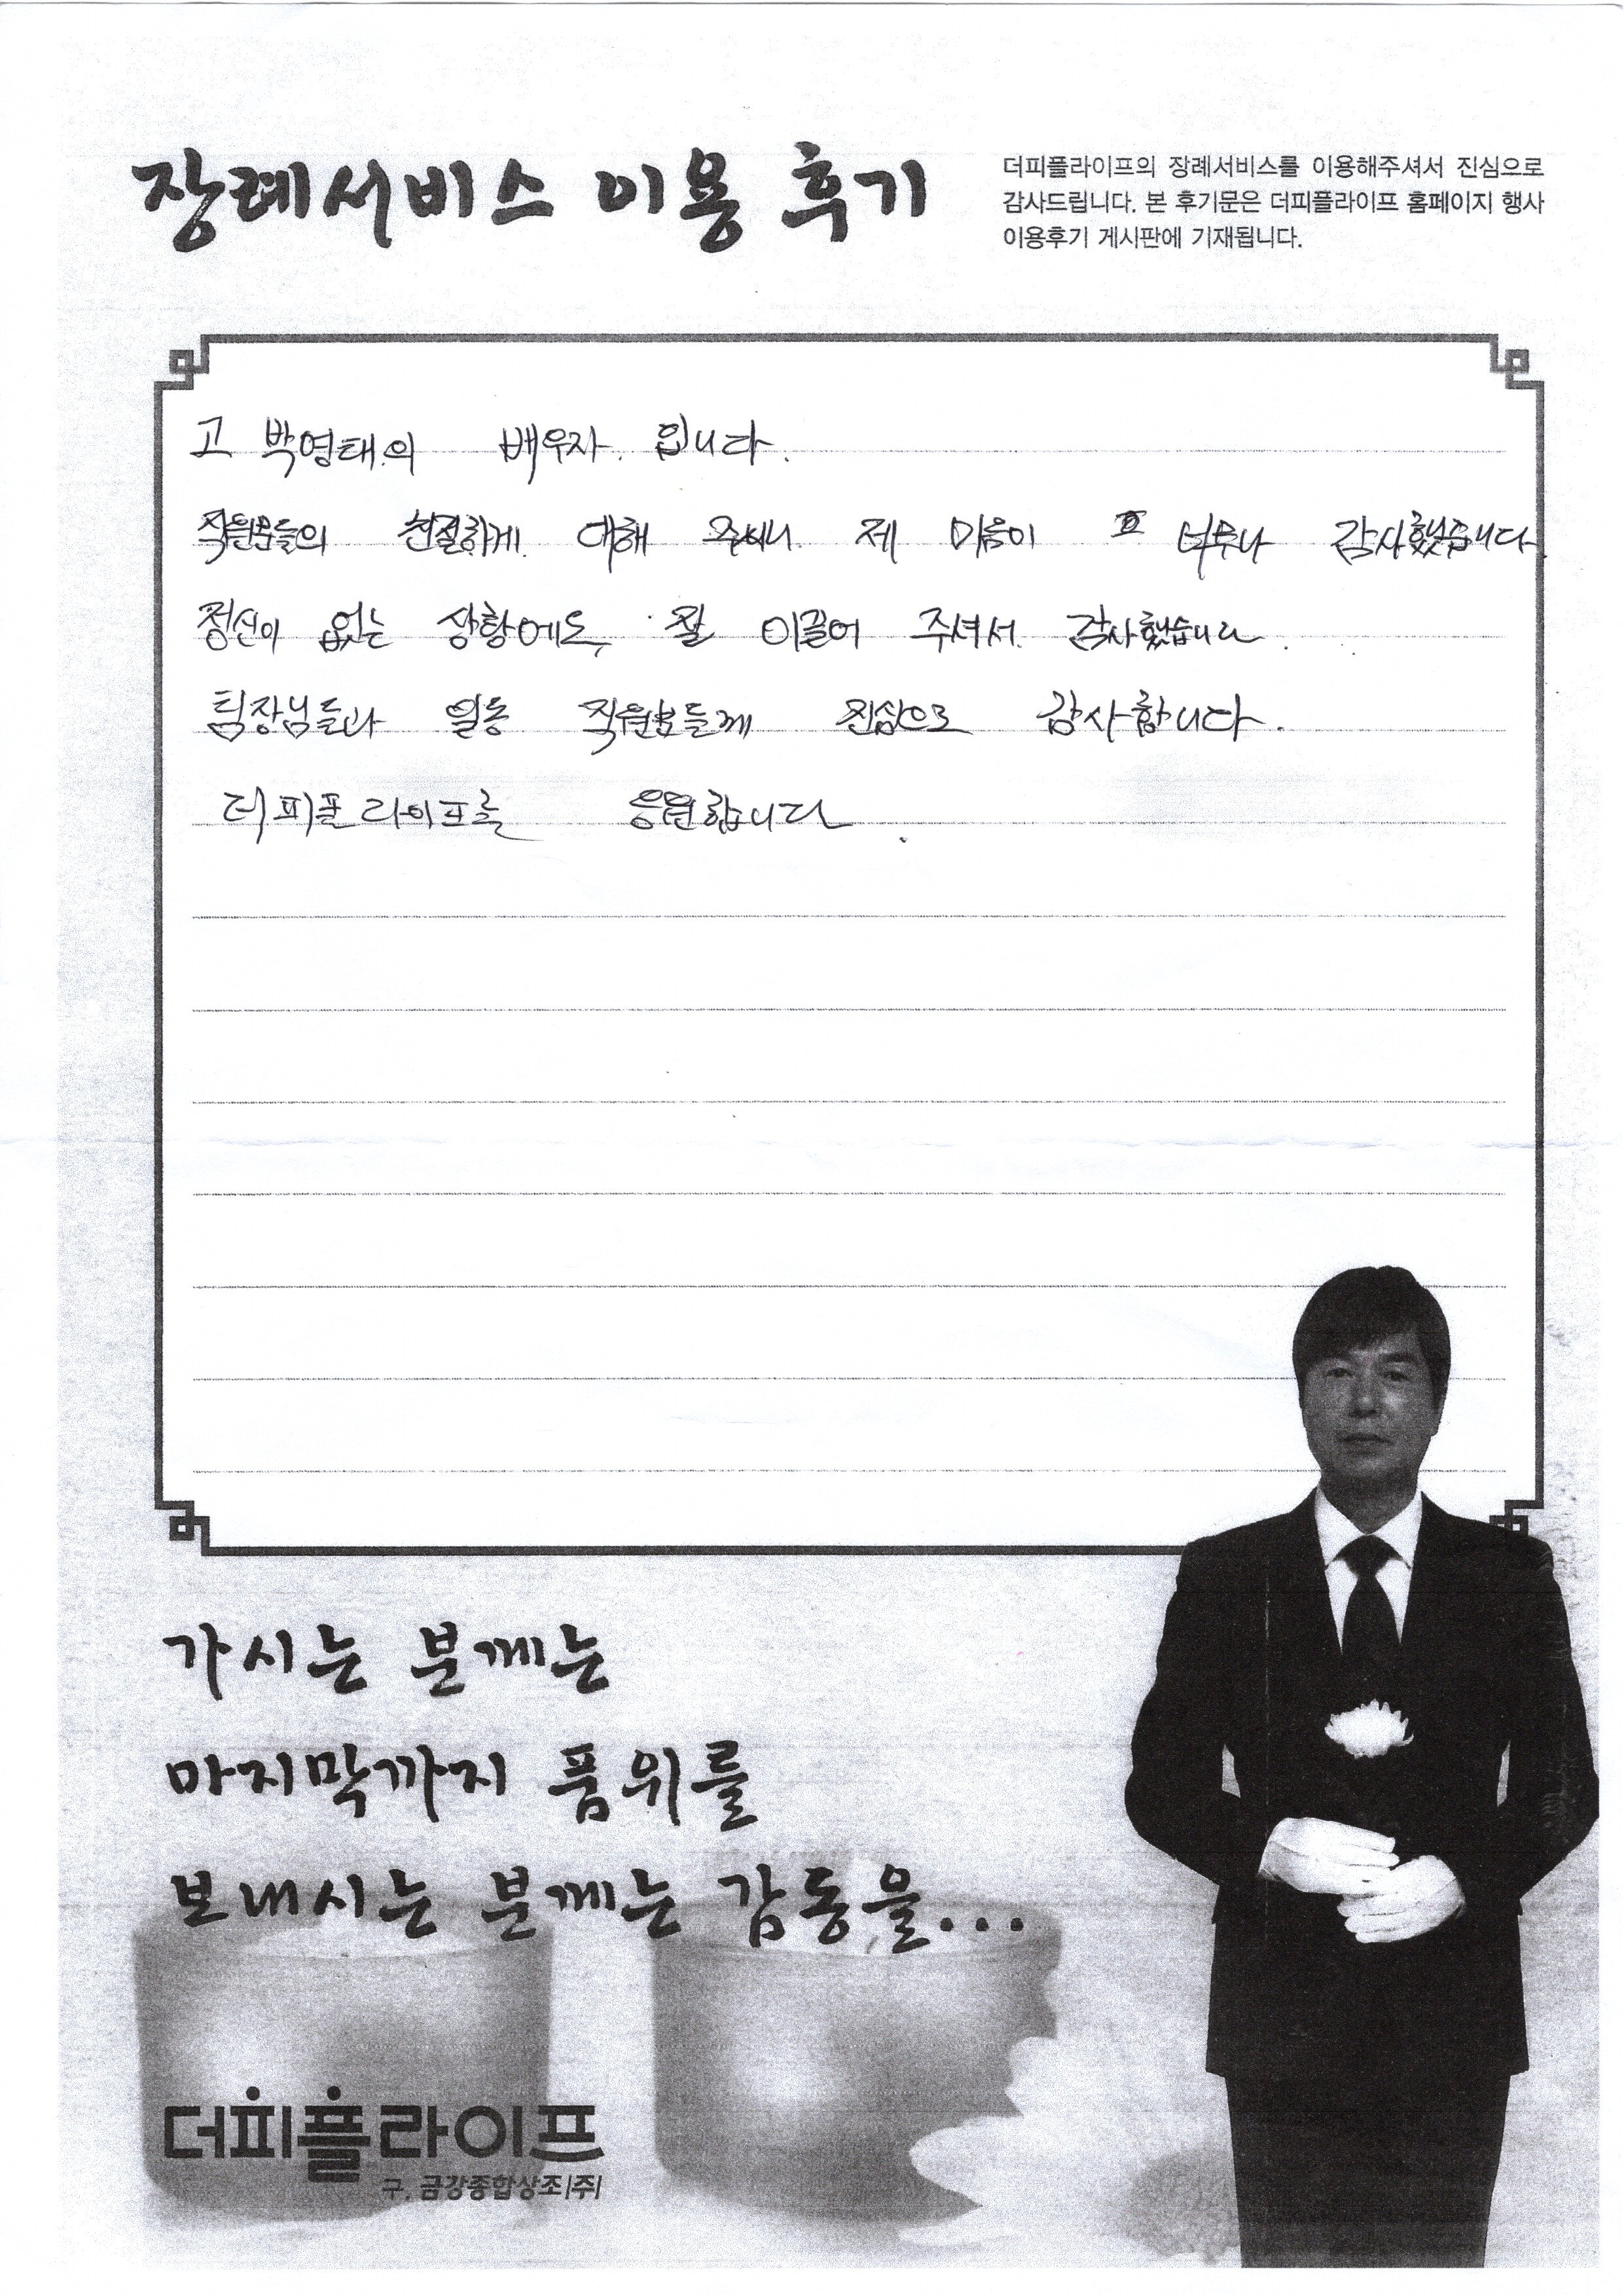 장례서비스 이용 후기
더피플라이프의 장례서비스를 이용해주셔서 진심으로
감사드립니다. 본 후기문은 더피플라이프 홈페이지 행사
이용후기 게시판에 기재됩니다.
고 박영태의 배우자 입니다.
직원분들의 친절하게 대해 주시니 제 마음이 너무나 감사했습니다
정신이 없는 상황에도, 잘 이끌어 주셔서 감사했습니다.
팀장님들과 일동 직원분들께 진심으로 감사합니다.
더피플라이프를 응원합니다.
가시는 분께는
마지막까지 품위를
보내시는 분께는 감동을...
더피플라이프
구. 금강종합상조(주)